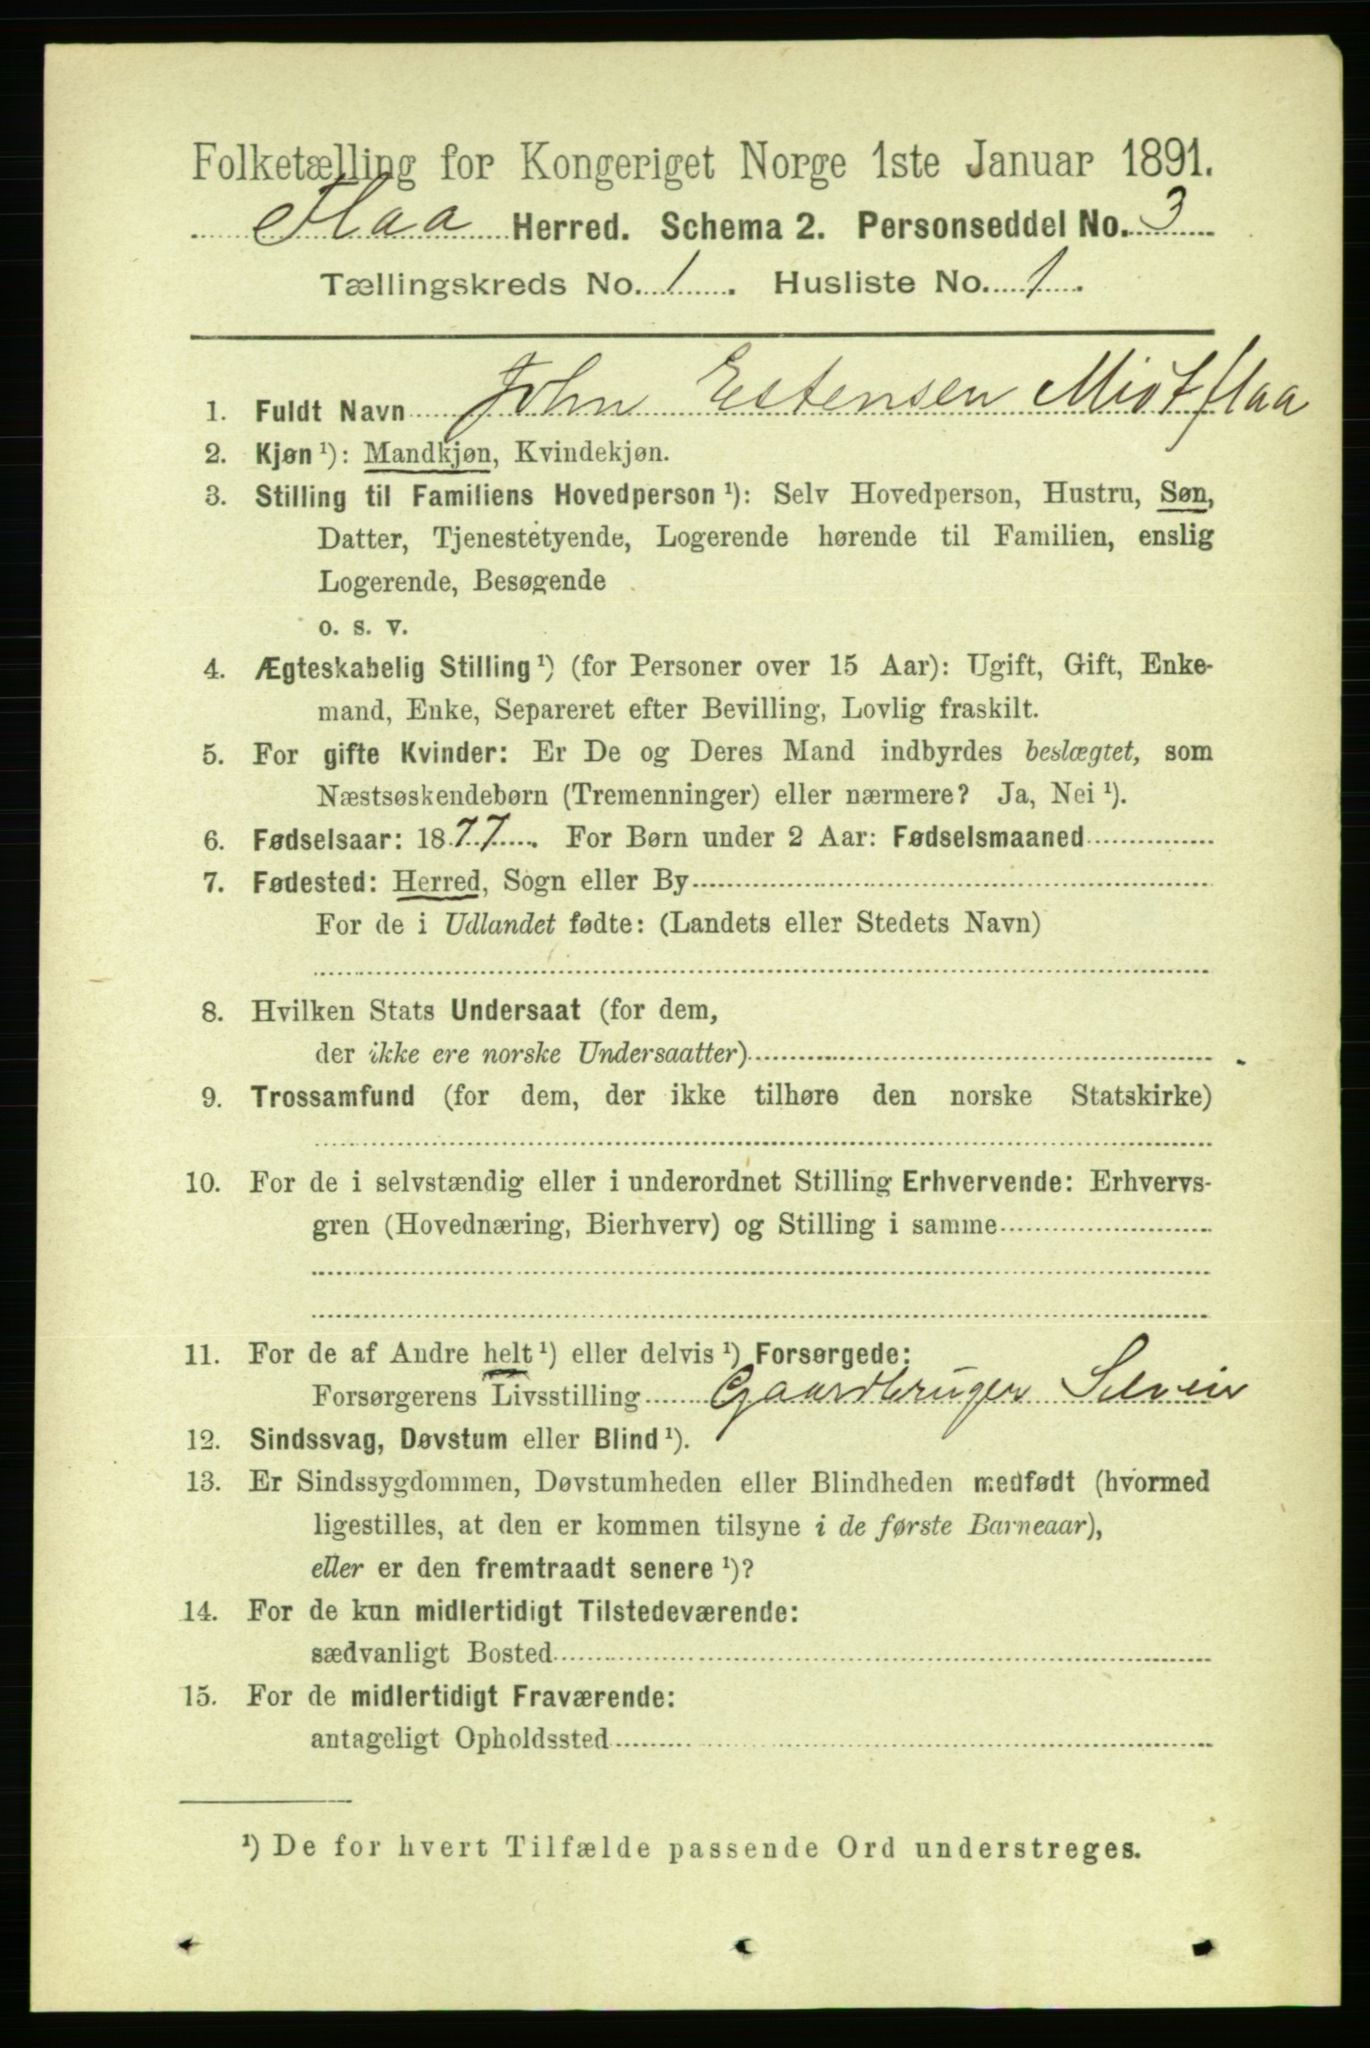 Folketælling for Kongeriget Norge 1ste Januar 1891.
Flaa Herred. Schema 2. Personseddel No. 3
Tællingskreds No. 1. Husliste No. 1.
1. Fuldt Navn John Estensen Midtflaa
2. Kjøn ¹): Mandkjøn, Kvindekjøn.
3. Stilling til Familiens Hovedperson ¹): Selv Hovedperson, Hustru, Søn,
Datter, Tjenestetyende, Logerende hørende til Familien, enslig
Logerende, Besøgende
o. s. v.
4. Ægteskabelig Stilling ¹) (for Personer over 15 Aar): Ugift, Gift, Enke-
mand, Enke, Separeret efter Bevilling, Lovlig fraskilt.
5. For gifte Kvinder: Er De og Deres Mand indbyrdes beslægtet, som
Næstsøskendebørn (Tremenninger) eller nærmere? Ja, Nei ¹).
6. Fødselsaar: 1877. For Børn under 2 Aar: Fødselsmaaned
7. Fødested: Herred, Sogn eller By
For de i Udlandet fødte: (Landets eller Stedets Navn)
8. Hvilken Stats Undersaat (for dem,
der ikke ere norske Undersaatter)
9. Trossamfund (for dem, der ikke tilhøre den norske Statskirke)
10. For de i selvstændig eller i underordnet Stilling Erhvervende: Erhvervs-
gren (Hovednæring, Bierhverv) og Stilling i samme
11. For de af Andre helt ¹) eller delvis ¹) Forsørgede:
Forsørgerens Livsstilling Gaardbruger Seleier
12. Sindssvag, Døvstum eller Blind ¹).
13. Er Sindssygdommen, Døvstumheden eller Blindheden medfødt (hvormed
ligestilles, at den er kommen tilsyne i de første Barneaar),
eller er den fremtraadt senere ¹)?
14. For de kun midlertidigt Tilstedeværende:
sædvanligt Bosted
15. For de midlertidigt Fraværende:
antageligt Opholdssted
¹) De for hvert Tilfælde passende Ord understreges.